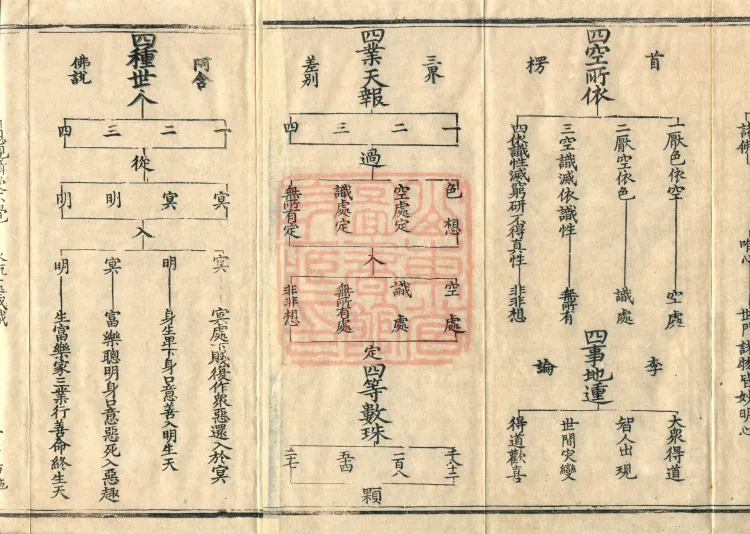 首楞
四空所依
一厭色依空 空處
二厭空依色 識處
三空識滅依識性 無所有
四依識性滅窮研不得真性 非非想
李論
四事地運
大眾得道
智人出現
世間灾變
得道歡喜
三界差別
四業天報
一 二 三 四
過
色想
空處定
識處定
無所有定
入
空處
識處
無所有處
非非想
定
四等數珠
一百八
五十四
顆
阿含佛說
四種世人
一 二 三 四
從
冥 冥 明 明
入
冥 冥處下賤復作眾惡還入於冥
明 身生卑下身口意善入明生天
冥 富樂聰明身口意惡死入惡趣
明 生富樂家三業行善命終生天